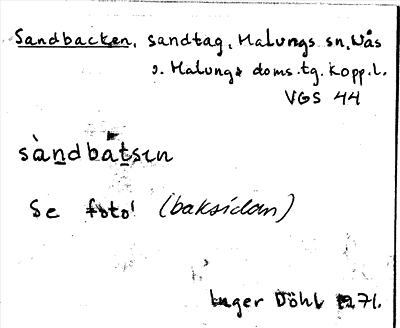 Sandbacken, sandtag, Malungs sn, Nås
o. Malungs doms.tg. Kopp.l.
VGS 44
sàndbat̲sın
Se foto! (baksidan)
Inger Döhl 1971.